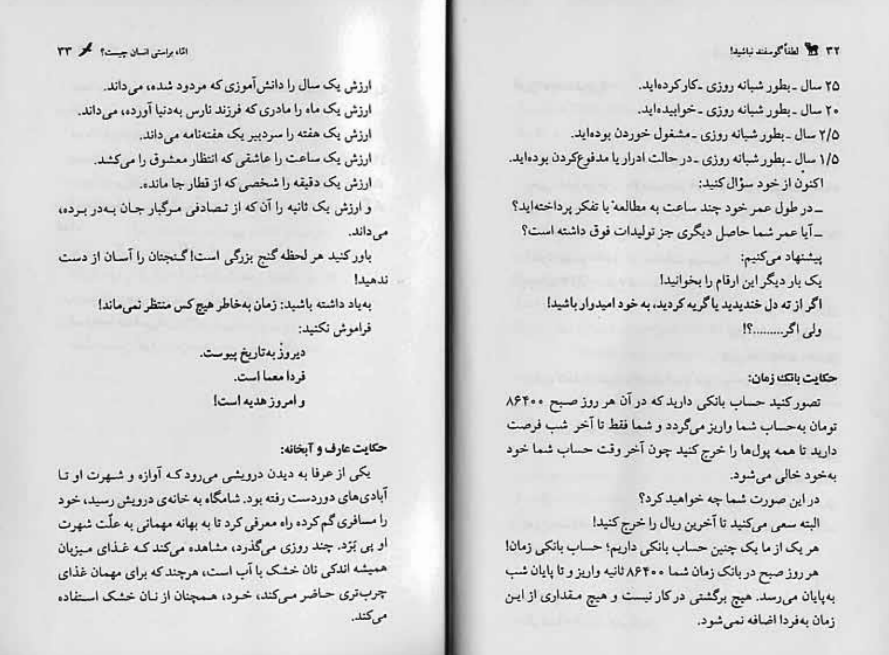 ۳۲ لطفاً گوسفند نباشید!
۲۵ سال ـ بطور شبانه روزی ـ کار کرده‌اید.
۲۰ سال ـ بطور شبانه روزی ـ خوابیده‌اید.
۲/۵ سال ـ بطور شبانه روزی ـ مشغول خوردن بوده‌اید.
۱/۵ سال ـ بطور شبانه روزی ـ در حالت ادرار یا مدفوع‌کردن بوده‌اید.
اکنون از خود سؤال کنید:
ـ در طول عمر خود چند ساعت به مطالعه یا تفکر پرداخته‌اید؟
ـ آیا عمر شما حاصل دیگری جز تولیدات فوق داشته است؟
پیشنهاد می‌کنیم:
یک بار دیگر این ارقام را بخوانید!
اگر از ته دل خندیدید یا گریه کردید، به خود امیدوار باشید!
ولی اگر.........؟!
حکایت بانک زمان:
تصور کنید حساب بانکی دارید که در آن هر روز صبح ۸۶۴۰۰
تومان به‌حساب شما واریز می‌گردد و شما فقط تا آخر شب فرصت
دارید تا همه پول‌ها را خرج کنید چون آخر وقت حساب شما خود
به‌خود خالی می‌شود.
در این صورت شما چه خواهید کرد؟
البته سعی می‌کنید تا آخرین ریال را خرج کنید!
هر یک از ما یک چنین حساب بانکی داریم؛ حساب بانکی زمان!
هر روز صبح در بانک زمان شما ۸۶۴۰۰ ثانیه واریز و تا پایان شب
به‌پایان می‌رسد. هیچ برگشتی در کار نیست و هیچ مقداری از این
زمان به‌فردا اضافه نمی‌شود.
امّا، براستی انسان چیست؟ ۳۳
ارزش یک سال را دانش‌آموزی که مردود شده، می‌داند.
ارزش یک ماه را مادری که فرزند نارس به‌دنیا آورده، می‌داند.
ارزش یک هفته را سردبیر یک هفته‌نامه می‌داند.
ارزش یک ساعت را عاشقی که انتظار معشوق را می‌کشد.
ارزش یک دقیقه را شخصی که از قطار جا مانده.
و ارزش یک ثانیه را آن که از تصادفی مرگبار جان به‌در برده،
می‌داند.
باور کنید هر لحظه گنج بزرگی است! گنجتان را آسان از دست
ندهید!
به‌یاد داشته باشید: زمان به‌خاطر هیچ کس منتظر نمی‌ماند!
فراموش نکنید:
دیروز به‌تاریخ پیوست.
فردا معما است.
و امروز هدیه است!
حکایت عارف و آبخانه:
یکی از عرفا به دیدن درویشی می‌رود که آوازه و شهرت او تا
آبادی‌های دوردست رفته بود. شامگاه به خانه‌ی درویش رسید، خود
را مسافری گم کرده راه معرفی کرد تا به بهانه مهمانی به علّت شهرت
او پی بَرَد. چند روزی می‌گذرد، مشاهده می‌کند که غذای میزبان
همیشه اندکی نان خشک با آب است، هرچند که برای مهمان غذای
چرب‌تری حاضر می‌کند، خود، همچنان از نان خشک استفاده
می‌کند.